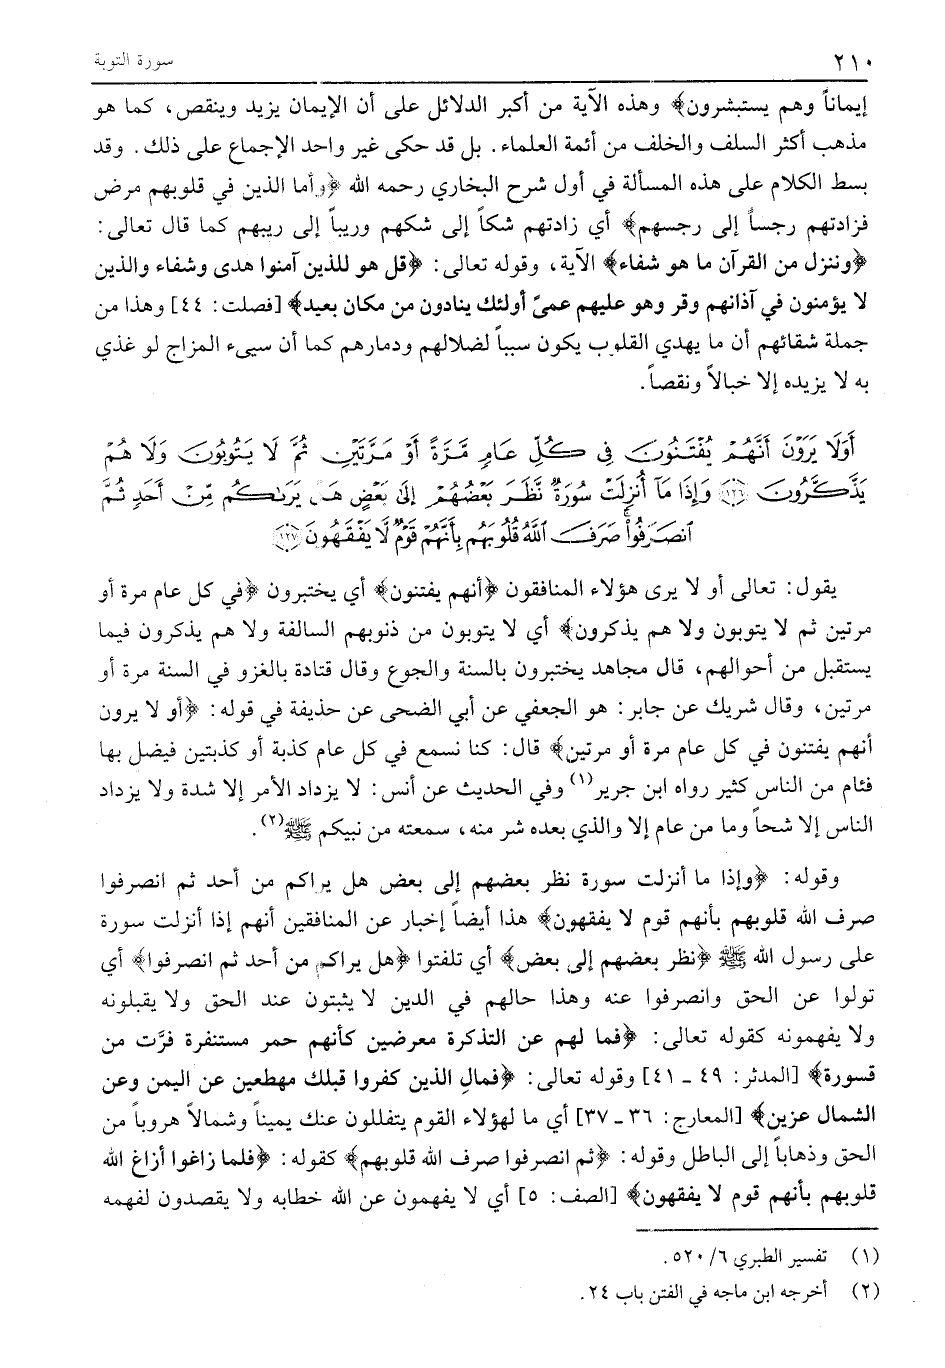 ٢١٠
سورة التوبة
إيماناً وهم يستبشرون﴾ وهذه الآية من أكبر الدلائل على أن الإيمان يزيد وينقص، كما هو
مذهب أكثر السلف والخلف من أئمة العلماء. بل قد حكى غير واحد الإجماع على ذلك. وقد
بسط الكلام على هذه المسألة في أول شرح البخاري رحمه الله ﴿وأما الذين في قلوبهم مرض
فزادتهم رجساً إلى رجسهم﴾ أي زادتهم شكاً إلى شكهم وريباً إلى ريبهم كما قال تعالى:
﴿وننزل من القرآن ما هو شفاء﴾ الآية، وقوله تعالى: ﴿قل هو للذين آمنوا هدى وشفاء والذين
لا يؤمنون في آذانهم وقر وهو عليهم عمىً أولئك ينادون من مكان بعيد﴾ [فصلت: ٤٤] وهذا من
جملة شقائهم أن ما يهدي القلوب يكون سبباً لضلالهم ودمارهم كما أن سييء المزاج لو غذي
به لا يزيده إلا خبالاً ونقصاً.
أَوَلَا يَرَوْنَ أَنَّهُمْ يُفْتَنُونَ فِي كُلِّ عَامٍ مَّرَّةً أَوْ مَرَّتَيْنِ ثُمَّ لَا يَتُوبُونَ وَلَا هُمْ
يَذَّكَّرُونَ ﴿١٢٦﴾ وَإِذَا مَآ أُنزِلَتْ سُورَةٌ نَّظَرَ بَعْضُهُمْ إِلَىٰ بَعْضٍ هَلْ يَرَىٰكُم مِّنْ أَحَدٍ ثُمَّ
ٱنصَرَفُوا۟ صَرَفَ ٱللَّهُ قُلُوبَهُم بِأَنَّهُمْ قَوْمٌ لَّا يَفْقَهُونَ ﴿١٢٧﴾
يقول: تعالى أو لا يرى هؤلاء المنافقون ﴿أنهم يفتنون﴾ أي يختبرون ﴿في كل عام مرة أو
مرتين ثم لا يتوبون ولا هم يذكرون﴾ أي لا يتوبون من ذنوبهم السالفة ولا هم يذكرون فيما
يستقبل من أحوالهم، قال مجاهد يختبرون بالسنة والجوع وقال قتادة بالغزو في السنة مرة أو
مرتين، وقال شريك عن جابر: هو الجعفي عن أبي الضحى عن حذيفة في قوله: ﴿أو لا يرون
أنهم يفتنون في كل عام مرة أو مرتين﴾ قال: كنا نسمع في كل عام كذبة أو كذبتين فيضل بها
فئام من الناس كثير رواه ابن جرير(١) وفي الحديث عن أنس: لا يزداد الأمر إلا شدة ولا يزداد
الناس إلا شحاً وما من عام إلا والذي بعده شر منه، سمعته من نبيكم ﷺ(٢).
وقوله: ﴿وإذا ما أنزلت سورة نظر بعضهم إلى بعض هل يراكم من أحد ثم انصرفوا
صرف الله قلوبهم بأنهم قوم لا يفقهون﴾ هذا أيضاً إخبار عن المنافقين أنهم إذا أنزلت سورة
على رسول الله ﷺ ﴿نظر بعضهم إلى بعض﴾ أي تلفتوا ﴿هل يراكم من أحد ثم انصرفوا﴾ أي
تولوا عن الحق وانصرفوا عنه وهذا حالهم في الدين لا يثبتون عند الحق ولا يقبلونه
ولا يفهمونه كقوله تعالى: ﴿فما لهم عن التذكرة معرضين كأنهم حمر مستنفرة فرَّت من
قسورة﴾ [المدثر: ٤٩ ـ ٤١] وقوله تعالى: ﴿فمالِ الذين كفروا قبلك مهطعين عن اليمن وعن
الشمال عزين﴾ [المعارج: ٣٦ ـ ٣٧] أي ما لهؤلاء القوم يتفللون عنك يميناً وشمالاً هروباً من
الحق وذهاباً إلى الباطل وقوله: ﴿ثم انصرفوا صرف الله قلوبهم﴾ كقوله: ﴿فلما زاغوا أزاغ الله
قلوبهم بأنهم قوم لا يفقهون﴾ [الصف: ٥] أي لا يفهمون عن الله خطابه ولا يقصدون لفهمه
(١) تفسير الطبري ٦/ ٥٢٠.
(٢) أخرجه ابن ماجه في الفتن باب ٢٤.